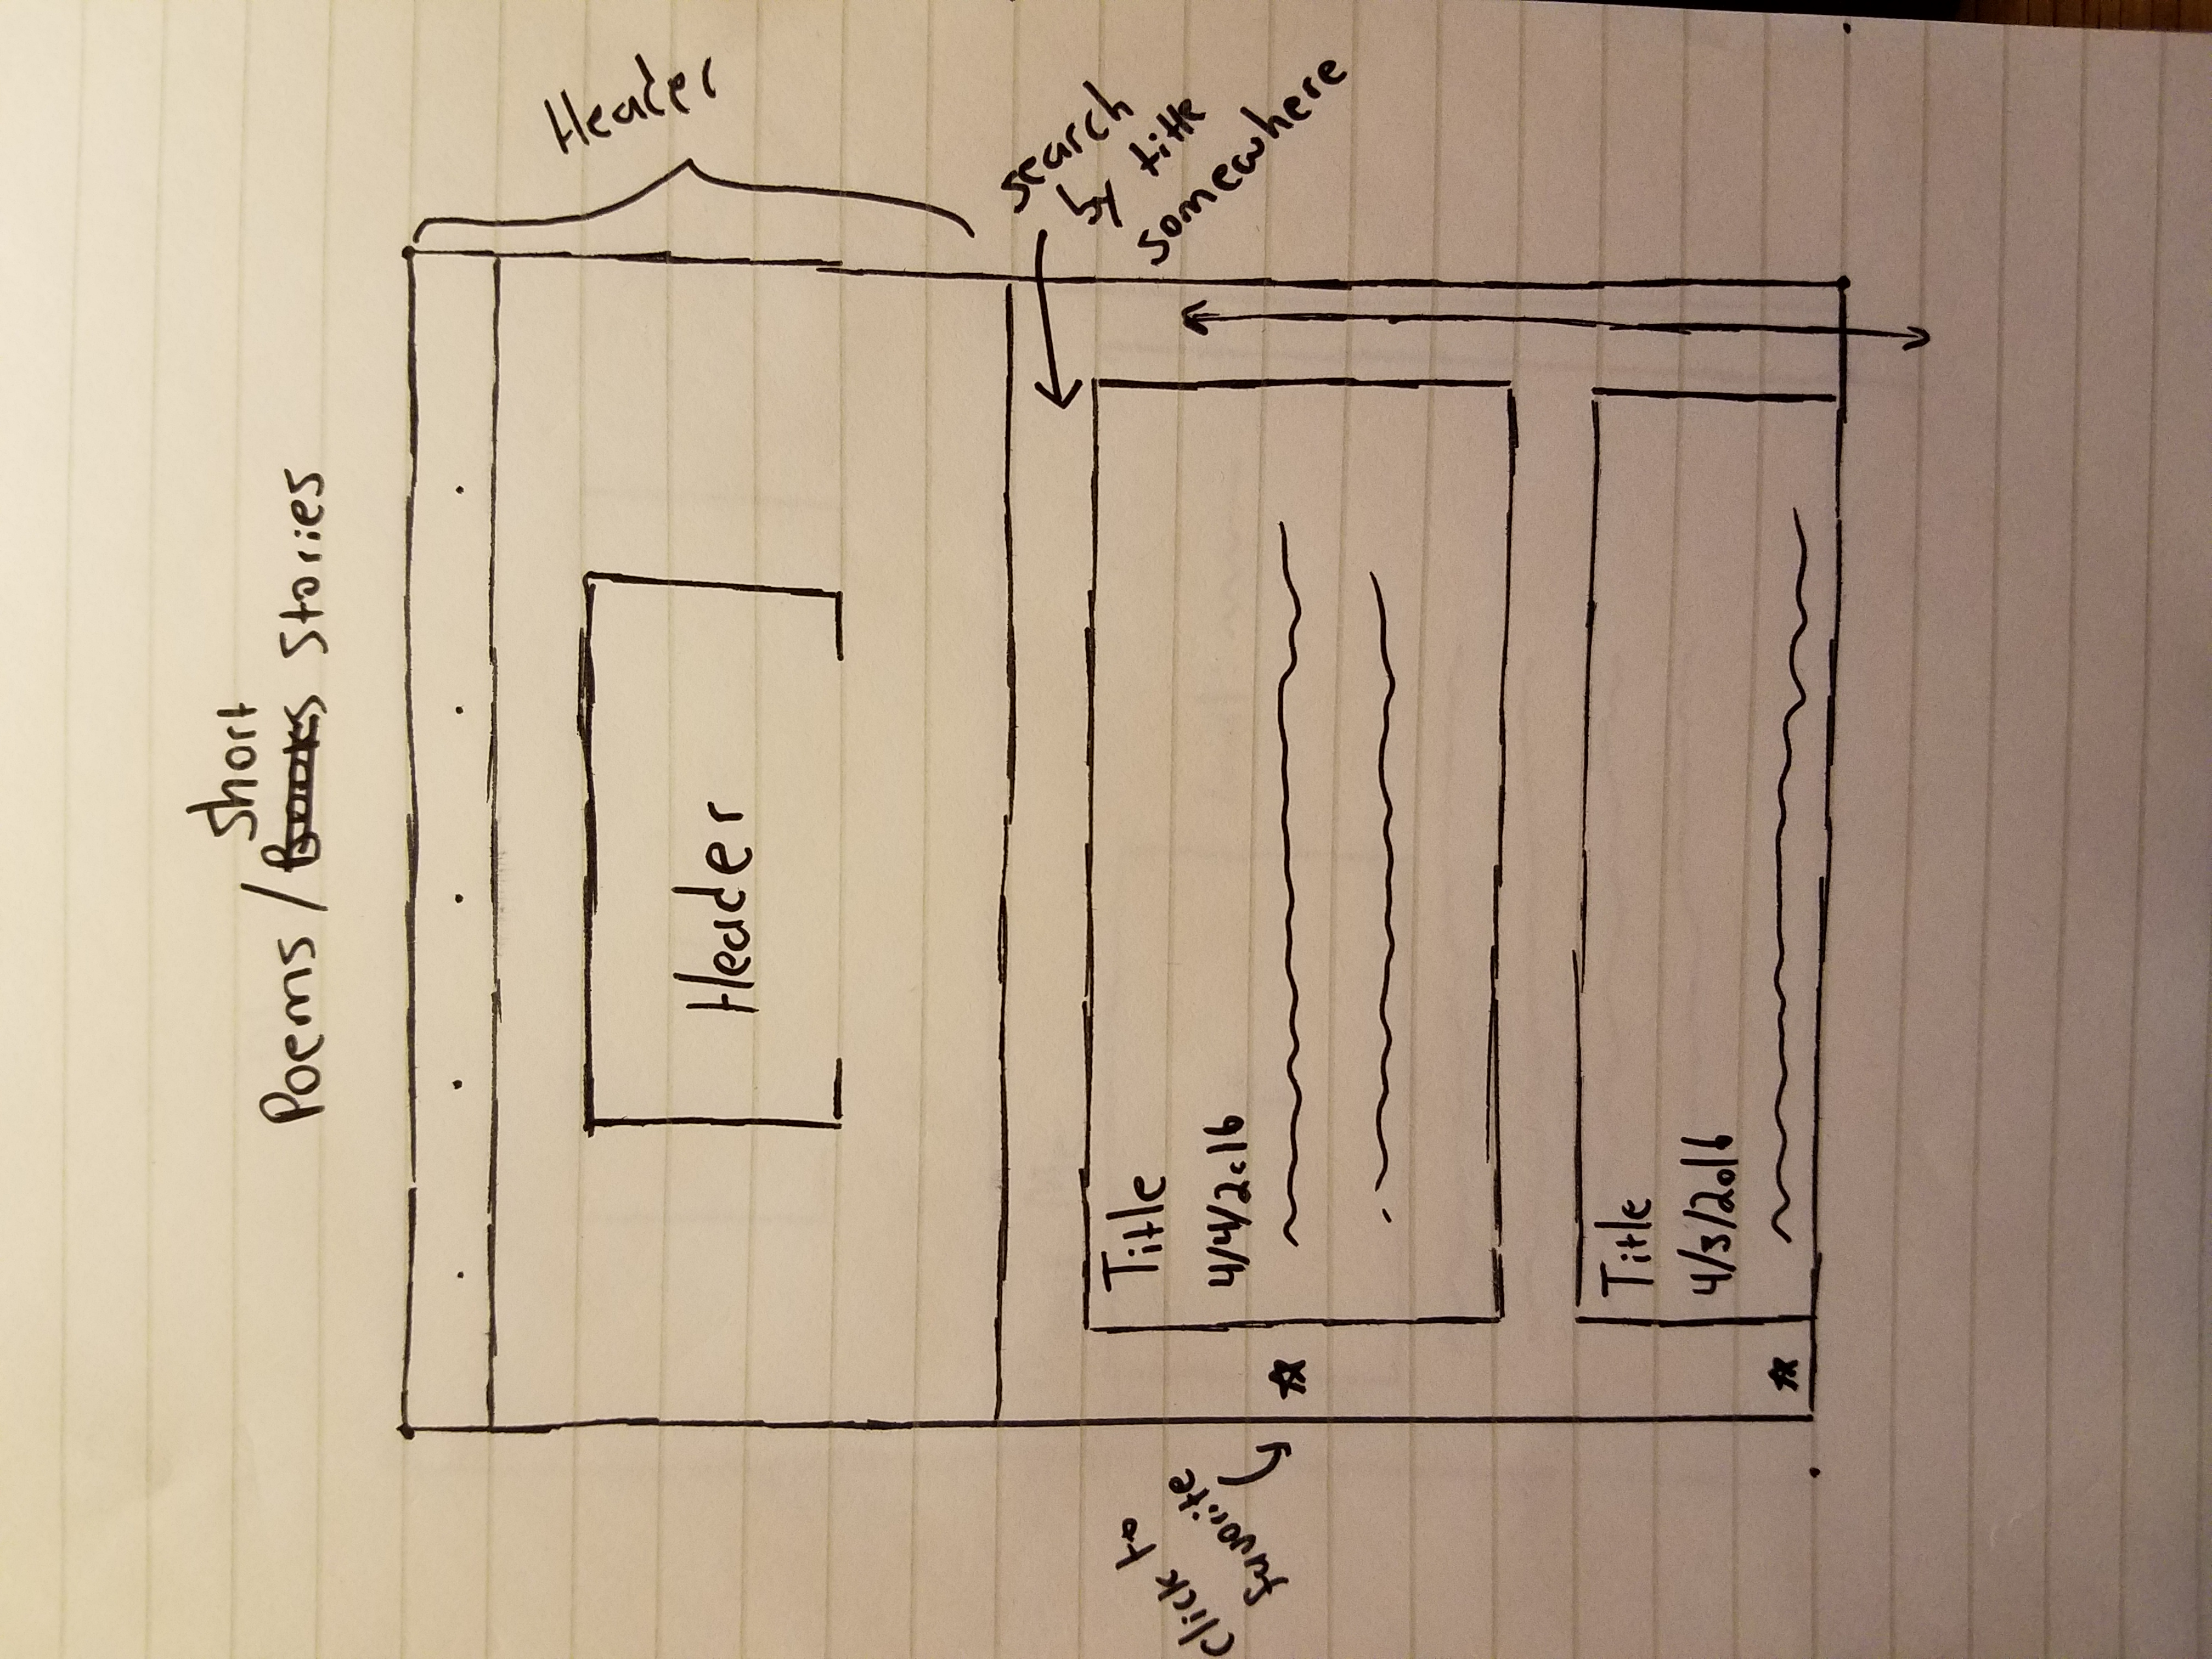 Short
Poems / Books Stories
Header
Header
search
by title
somewhere
click to
favorite
Title
4/4/2016
Title
4/3/2016